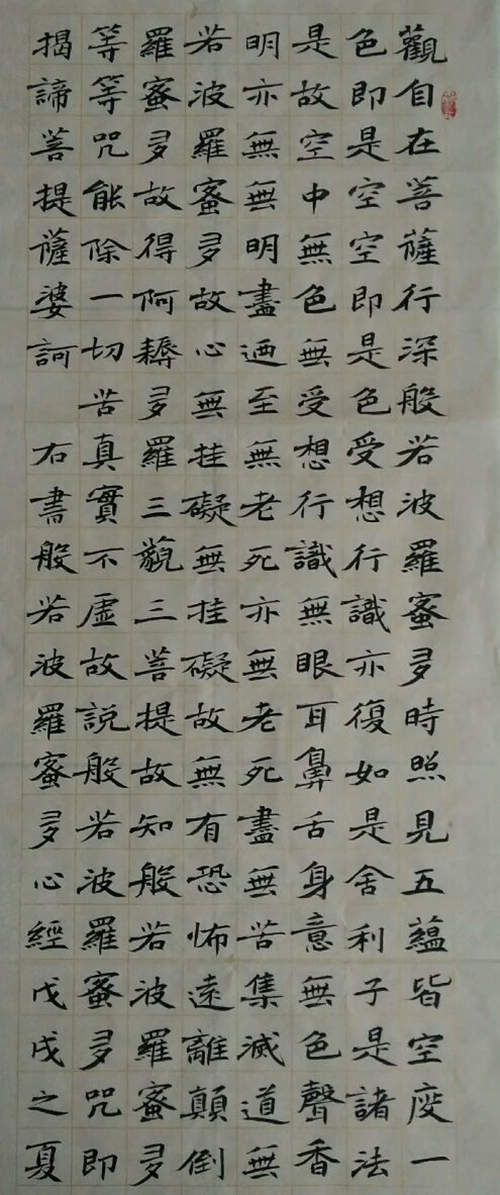 觀自在菩薩行深般若波羅蜜多時照見五蘊皆空度一
色即是空空即是色受想行識亦復如是舍利子是諸法
是故空中無色無受想行識無眼耳鼻舌身意無色聲香
明亦無無明盡迺至無老死亦無老死盡無苦集滅道無
若波羅蜜多故心無挂礙無挂礙故無有恐怖遠離顛倒
羅蜜多故得阿耨多羅三藐三菩提故知般若波羅蜜多
等等咒能除一切苦真實不虛故說般若波羅蜜多咒即
揭諦菩提薩婆訶 右書般若波羅蜜多心經戊戌之夏